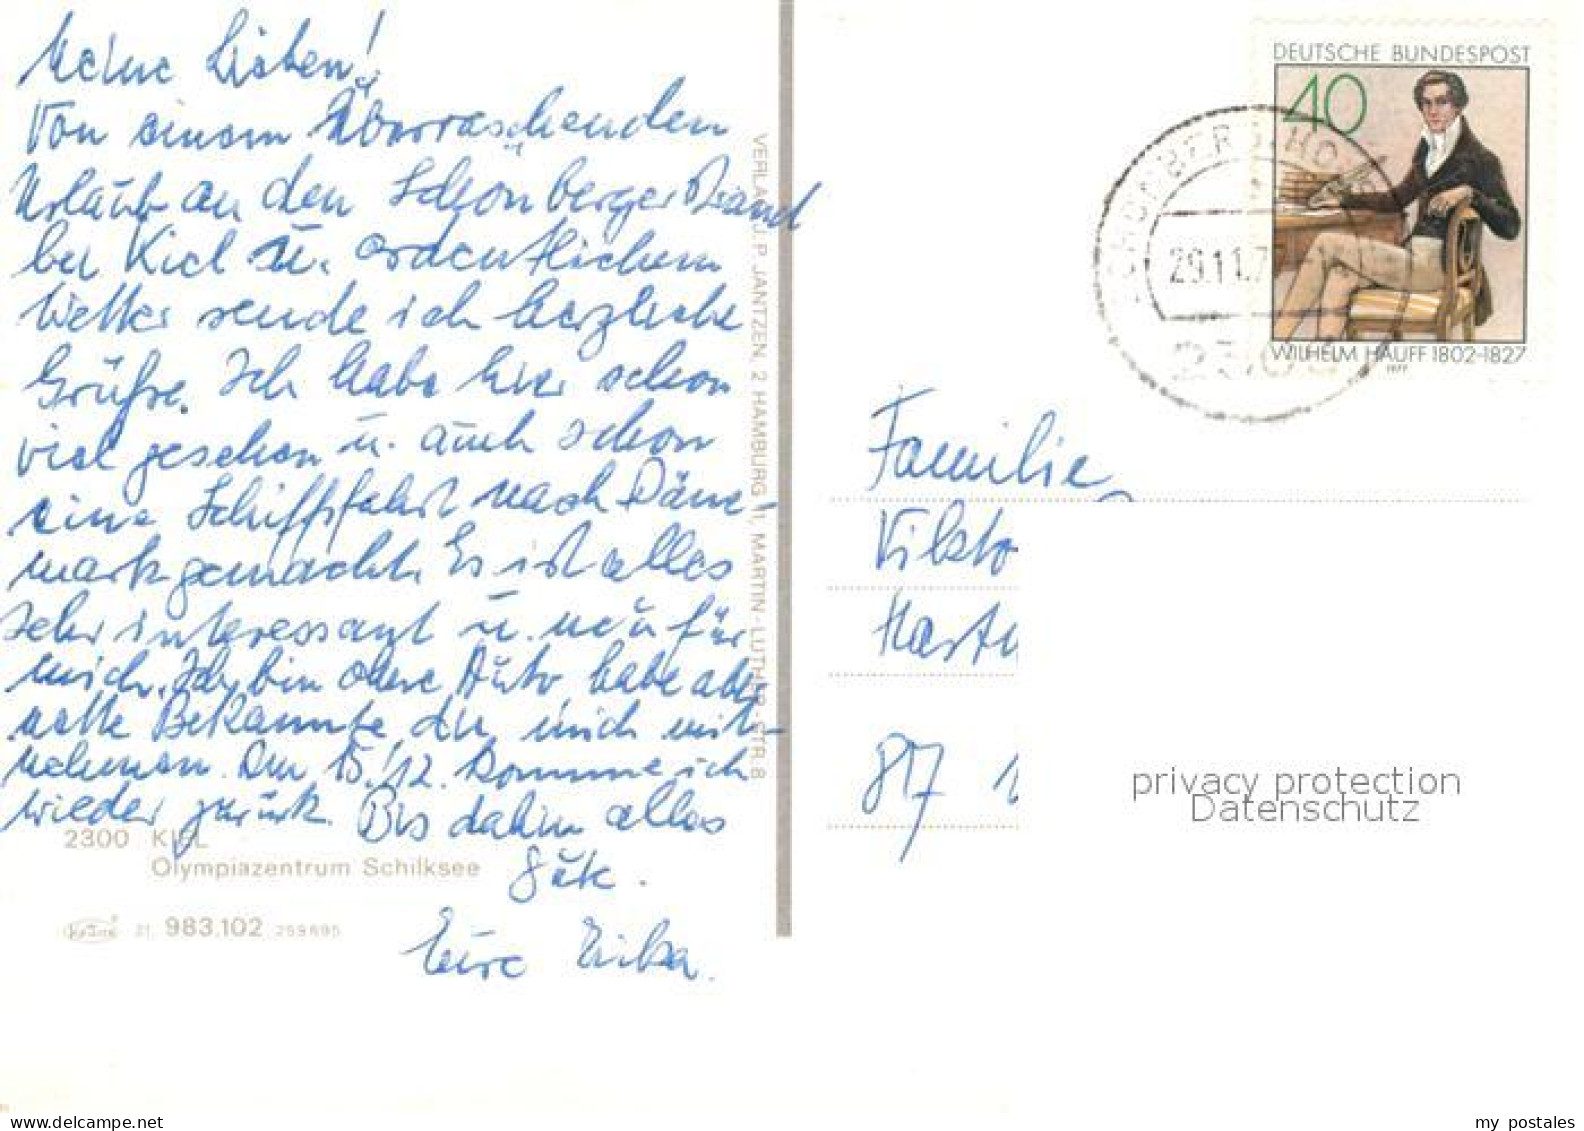 Meine Lieben!
Von einem überraschenden
Urlaub an den Schönberger Strand
bei Kiel u. ordentlichem
Wetter sende ich herzliche
Grüße. Ich habe hier schon
viel gesehen u. auch schon
eine Schifffahrt nach Däne-
mark gemacht. Es ist alles
sehr interessant u. neu für
mich. Ich bin ohne Auto, habe aber
nette Bekannte, die mich mit-
nehmen. Am 15./12. komme ich
wieder zurück. Bis dahin alles
Gute.
Eure Erika.
2300 KIEL
Olympiazentrum Schilksee
Krüger 21. 983.102 259695
VERLAG J. P. JANTZEN, 2 HAMBURG 11, MARTIN-LUTHER-STR. 8
DEUTSCHE BUNDESPOST
40
WILHELM HAUFF 1802-1827
1977
29.11.7
Familie
Vikto
Hart
817 1
privacy protection
Datenschutz
my postales